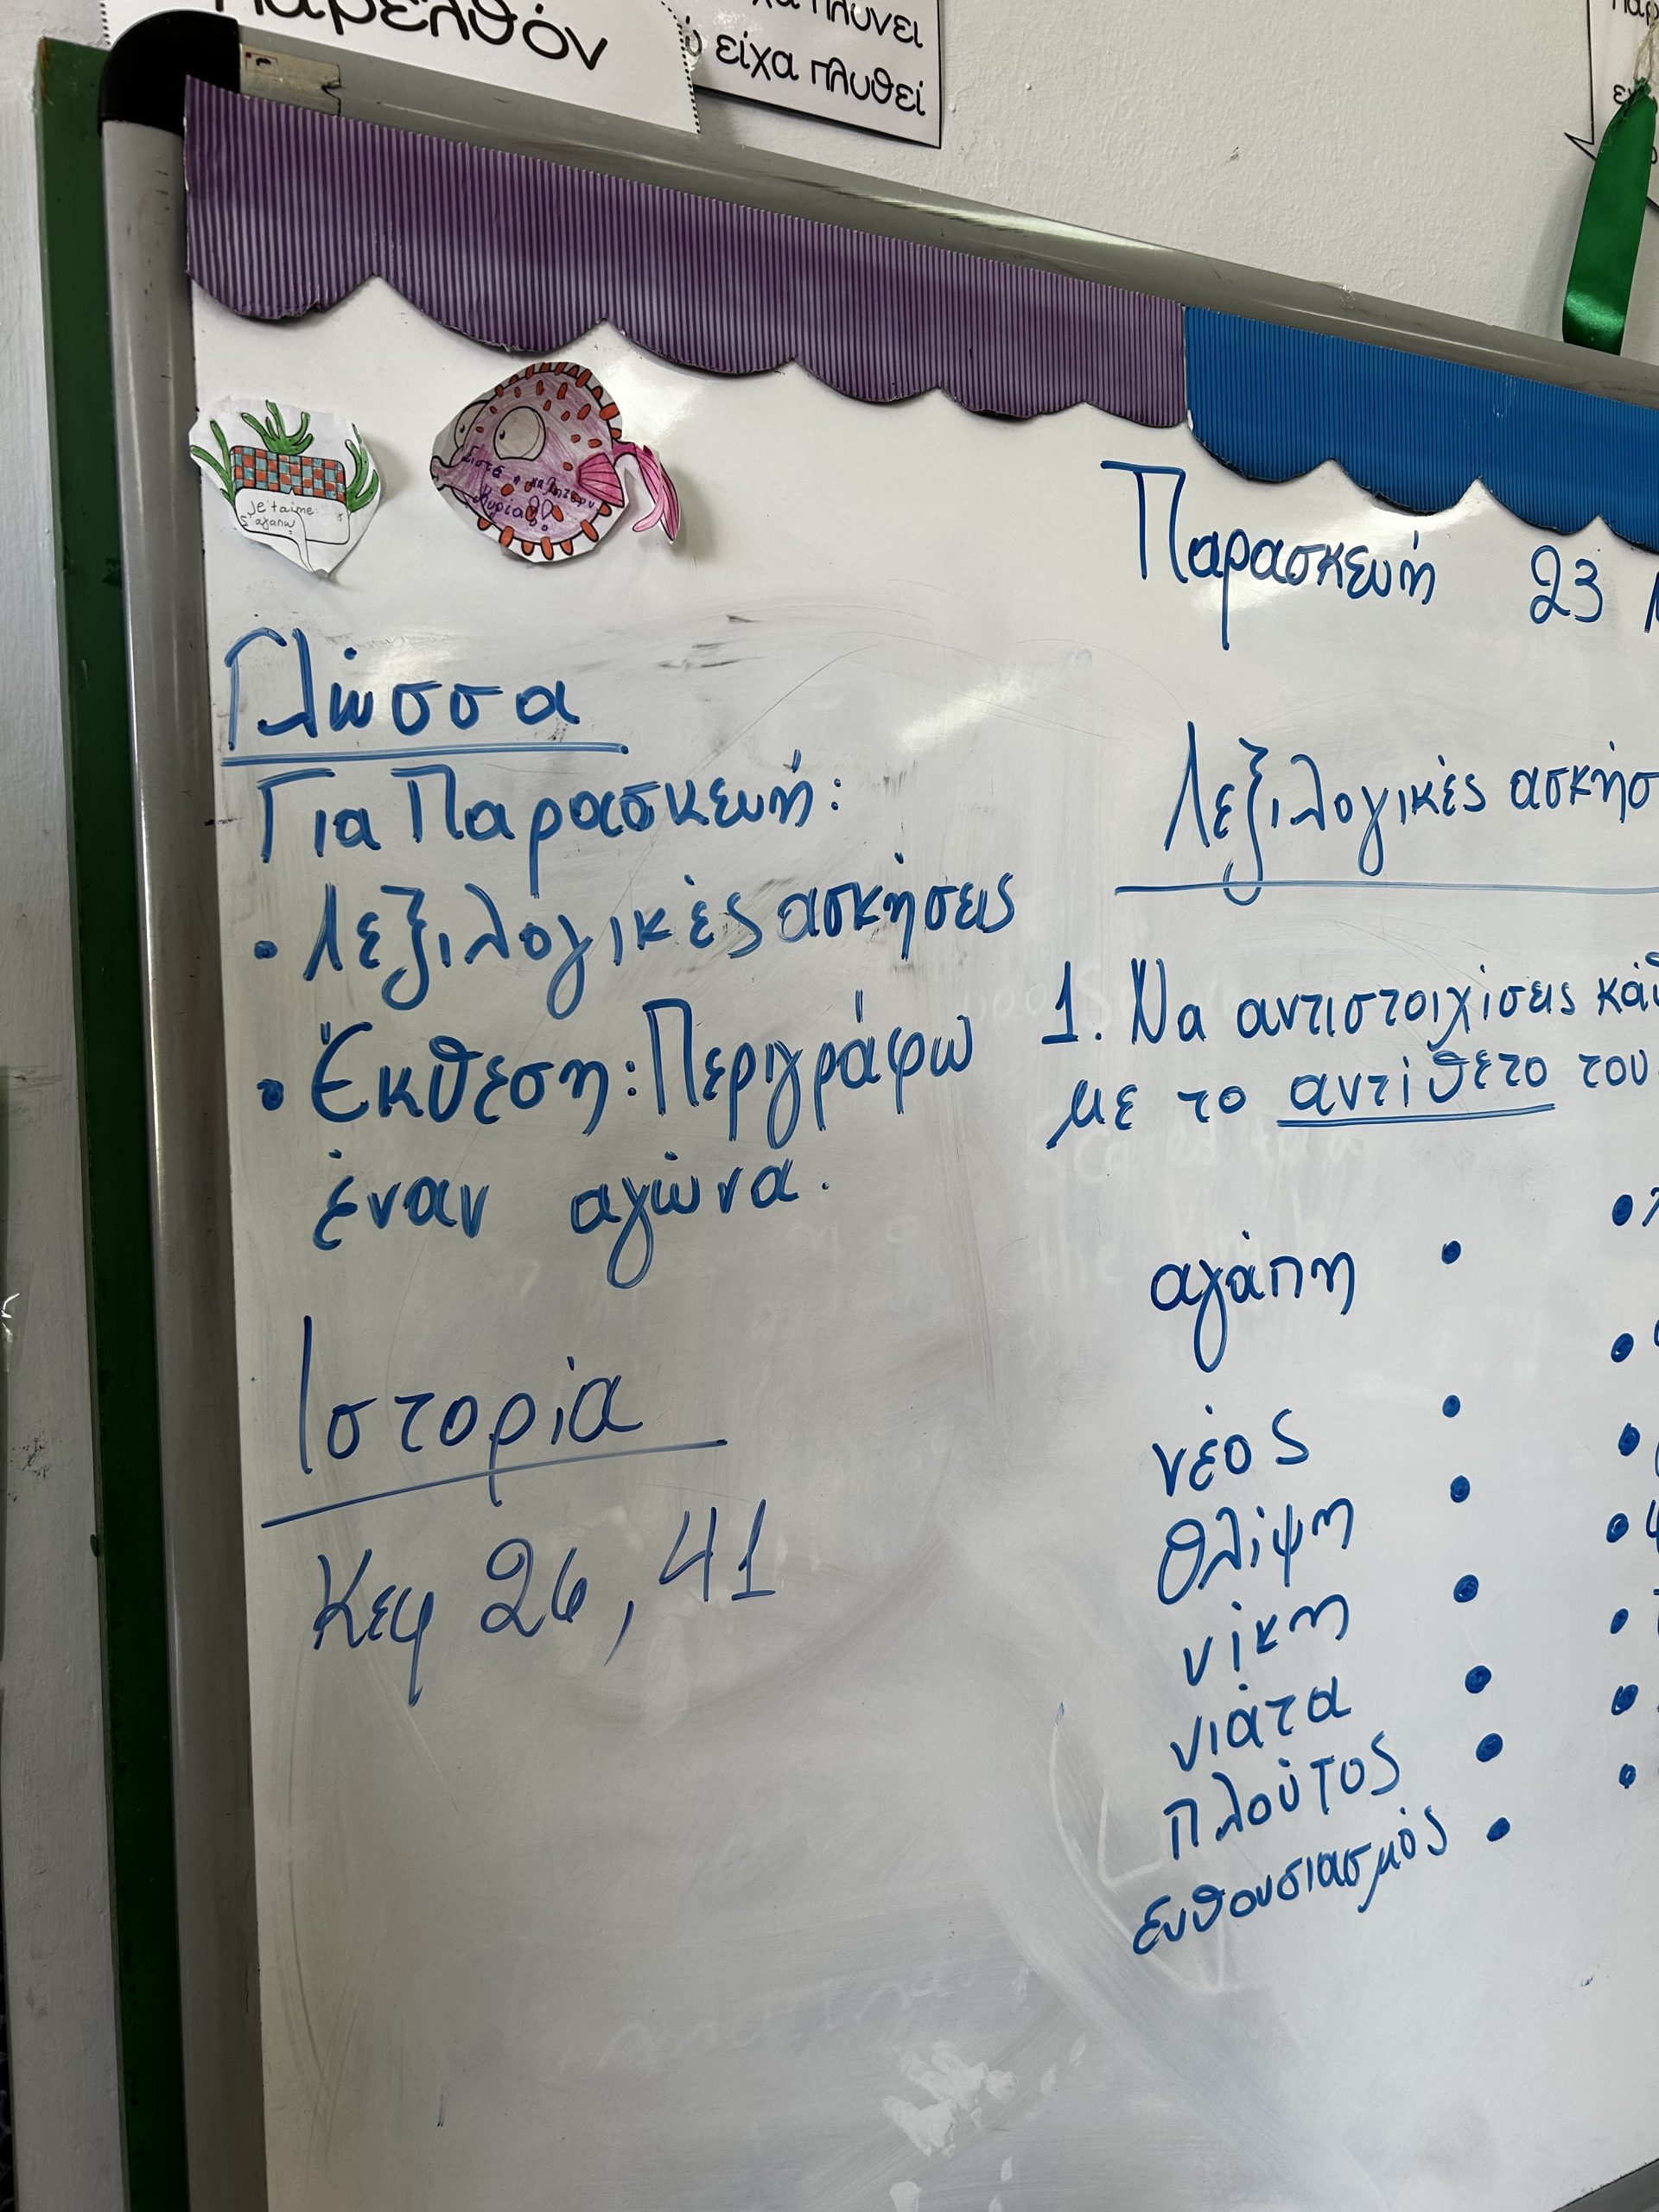 Παρελθόν
πλύνει
είχα πλυθεί
je t'aime
σ' αγαπώ
Παρασκευή 23
Γλώσσα
Για Παρασκευή:
• Λεξιλογικές ασκήσεις
• Έκθεση: Περιγράφω
έναν αγώνα.
Ιστορία
Κεφ 26, 41
Λεξιλογικές
1. Να αντιστοιχίσεις
με το αντίθετο του
αγάπη •
νέος •
θλίψη •
νίκη •
νιάτα •
πλούτος •
ενθουσιασμός •